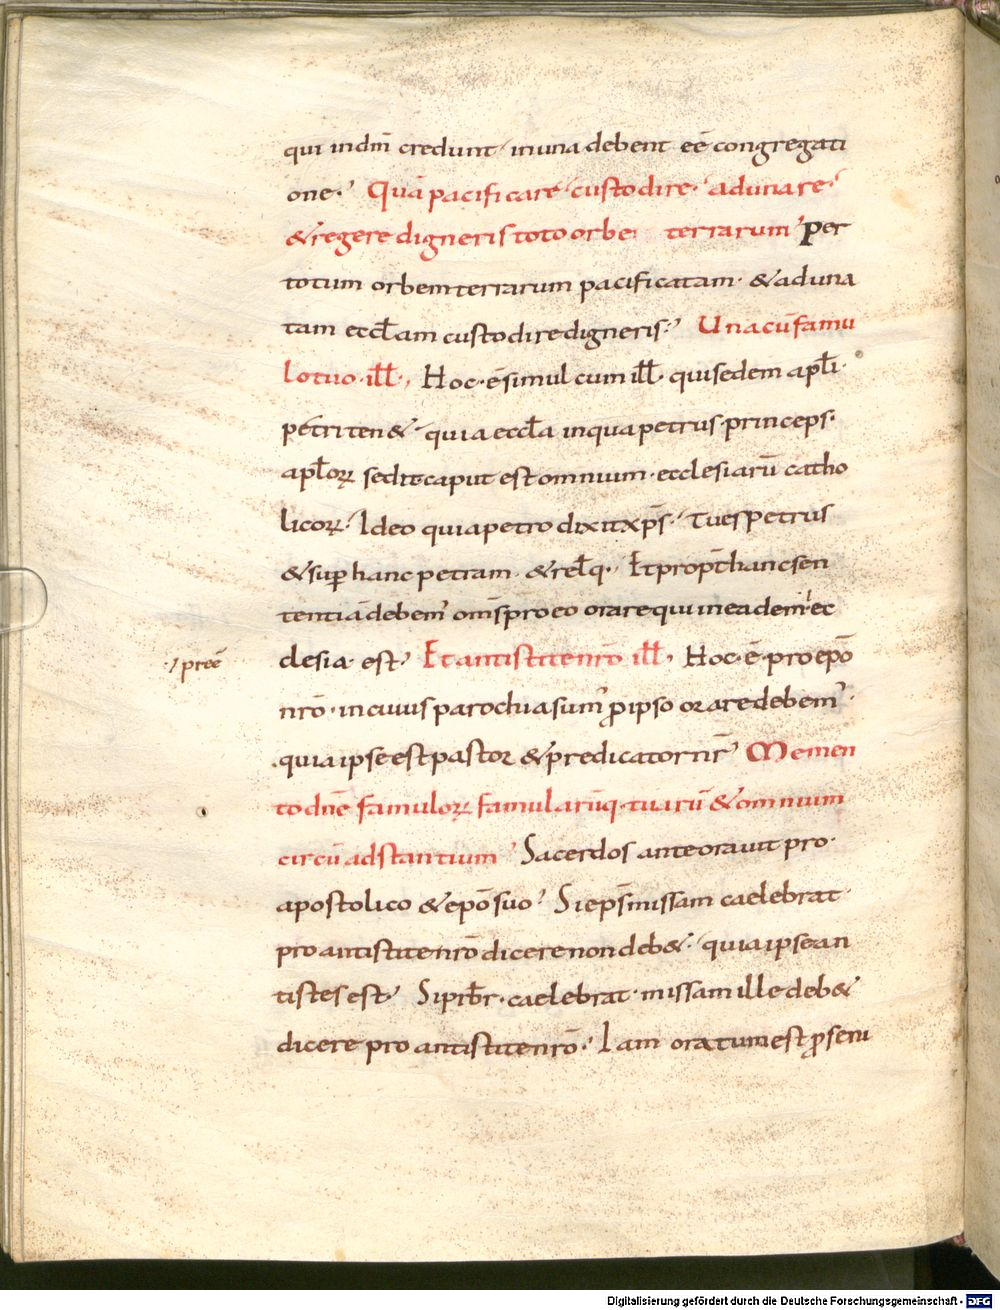 qui in dm̄ credunt in una debent eē congregati
one. Quā pacificare custodire. adunare.
& regere digneris toto orbe terrarum Per
totum orbem terrarum pacificatam. & aduna
tam eccl̄am custodire digneris. Una cū famu
lo tuo. ill̄. Hoc. ē simul cum ill̄. qui sedem apl̄i.
petri ten& quia eccl̄a in qua petrus princeps.
apl̄orꝝ sedit caput est omnium. ecclesiarū catho
licorꝝ. Ideo quia petro dixit xp̄s. Tu es petrus
& suꝑ hanc petram. & rel̄q. Et propt̄ hanc sen
tentiā debem' om̄s pro eo orare qui in eadem ec
clesia est. Et antistite nr̄o ill̄. Hoc. ē. pro ep̄o
preē
nr̄o. in cuius parochia sum' ꝓ ipso orare debem'.
quia ipse est pastor & predicator nr̄ Memen
to dn̄e famulorꝝ famularūq. tuarū & omnium
circū adstantium Sacerdos ante oravit pro.
apostolico & ep̄o suo Si ep̄s missam caelebrat.
pro antistite nr̄o dicere non deb&. quia ipse an
tistes est. Si prb̄r. caelebrat. missam ille deb&
dicere pro antistite nr̄o. Iam oratum est ꝓ seni
Digitalisierung gefördert durch die Deutsche Forschungsgemeinschaft - DFG